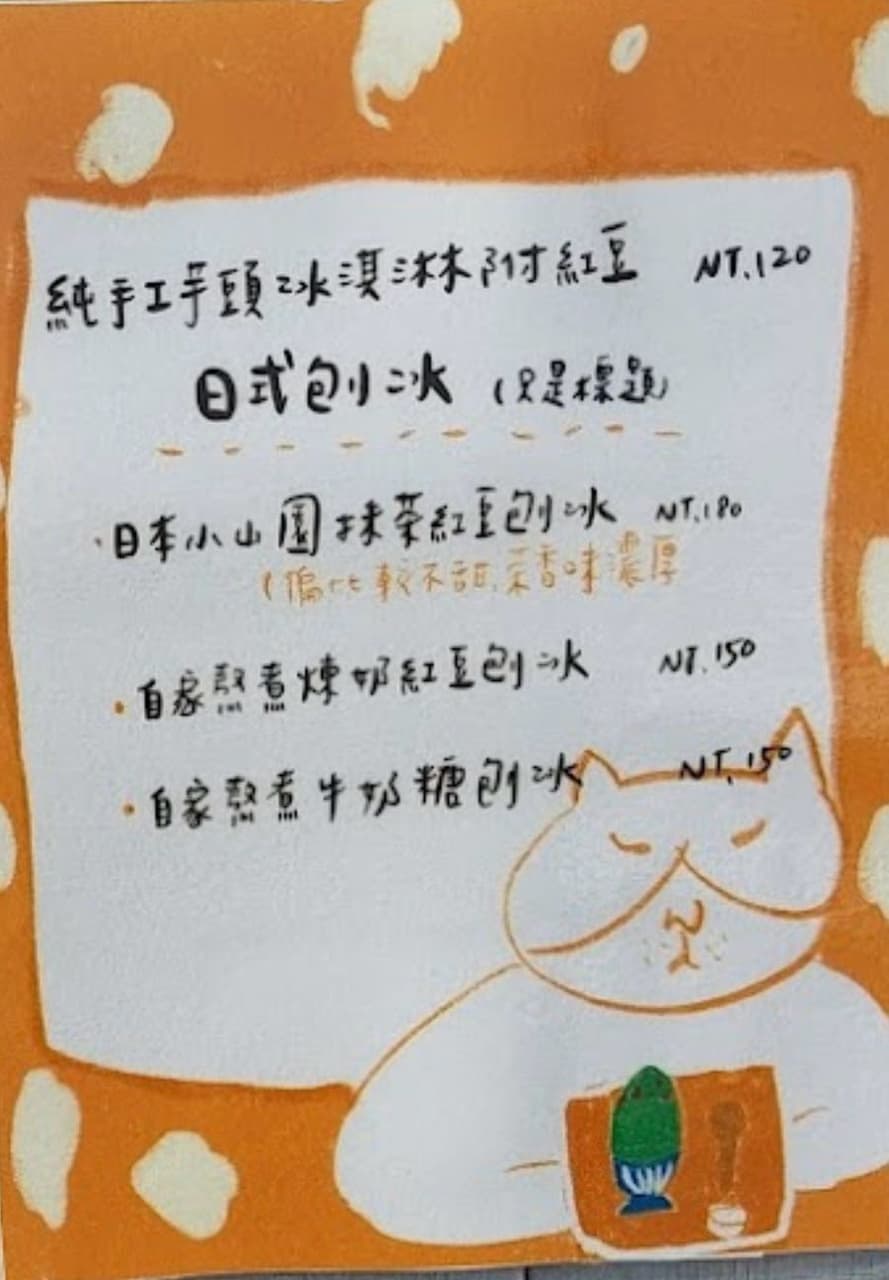 純手工芋頭冰淇淋附紅豆 NT.120
日式刨冰 (只是標題)
·日本小山園抹茶紅豆刨冰 NT.180
(偏比較不甜,茶香味濃厚
·自家熬煮煉奶紅豆刨冰 NT.150
·自家熬煮牛奶糖刨冰 NT.150